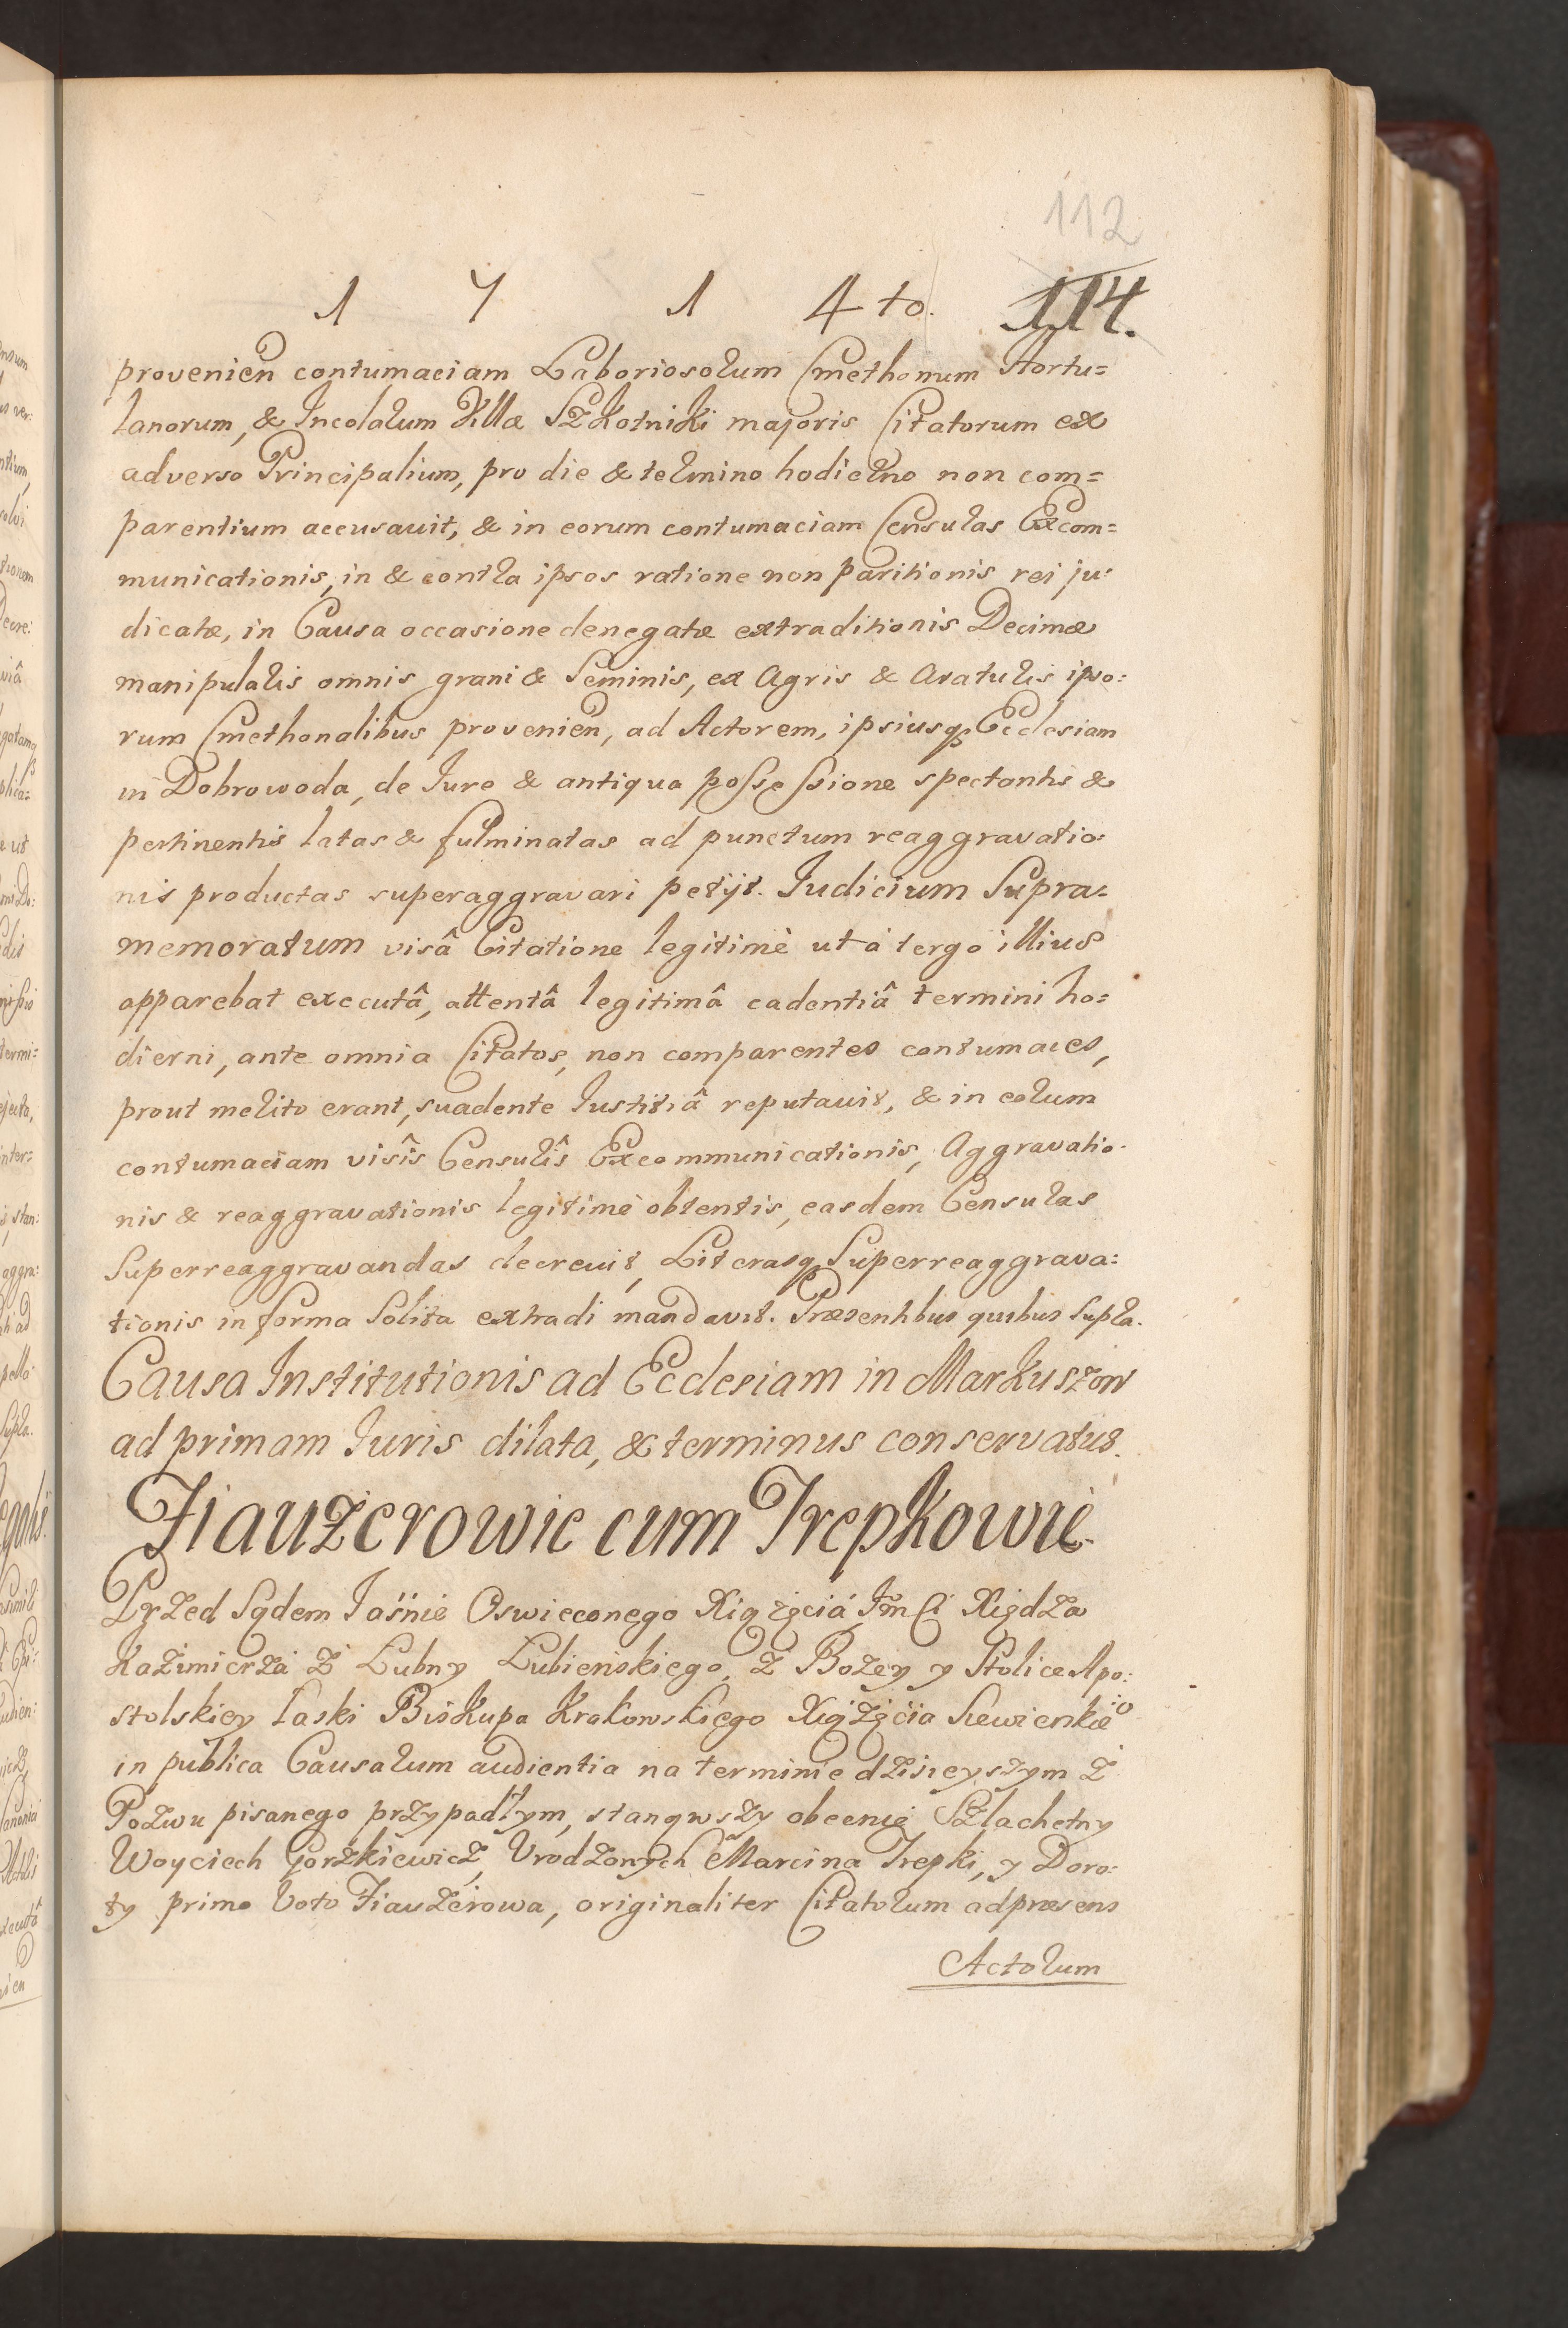 112
1 7 1 4to. 114.
provenien contumaciam Laboriosorum Cmethonum Hortu=
lanorum, & Incolarum Villæ Szkotniki majoris Citatorum ex
adverso Principalium, pro die & termino hodierno non com=
parentium accusavit, & in eorum contumaciam Censuras Excom=
municationis, in & contra ipsos ratione non paritionis rei ju:
dicatæ, in Causa occasione denegatæ extraditionis Decimæ
manipularis omnis grani & Seminis, ex Agris & Araturis ipso:
rum Cmethonalibus provenien, ad Actorem, ipsiusq Ecclesiam
in Dobrowoda, de Jure & antiqua possessione spectantis &
pertinentis latas & fulminatas ad punctum reaggravatio:
nis productas superaggravari petijt. Iudicium Supra=
memoratum visâ Citatione legitimè ut à tergo illius
apparebat executâ, attentâ legitimâ cadentiâ termini ho=
dierni, ante omnia Citatos, non comparentes contumaces,
prout merito erant, suadente Iustitiâ reputavit, & in eorum
contumaciam visîs Censurîs Excommunicationis, Aggravatio:
nis & reaggravationis legitimè obtentis, easdem Censuras
Superreaggravandas decrevit, Literasq Superreaggrava:
tionis in forma Solita extradi mandavit. Præsentibus quibus Supra.
Causa Institutionis ad Ecclesiam in Markuszow
ad primam Iuris dilata, & terminus conservatus.
Fiauzerowie cum Trepkowie.
Przed Sądem Jaśnie Oswieconego Xiążęciá Jm Ci Xiędza
Kazimierzá z Lubny Lubieńskiego, z Bozey y Stolice Apo:
stolskiey łaski Biskupa Krakowskiego Xiążęcia Siewierskieo
in publica Causarum audientia na terminie dzisieyszym z
Pozwu pisanego przypadłym, stanąwszy obecnie Szlachetny
Woyciech Gorzkiewicz, Vrodzonych Marcina Trepki, y Doro:
ty primo Voto Fiauzerowa, originaliter Citatorum ad præsens
Actorum